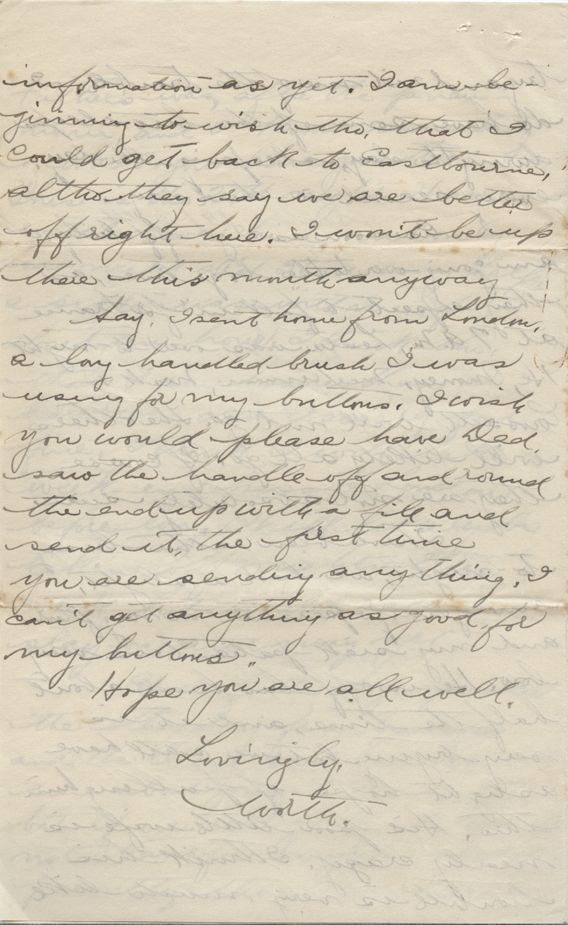 information as yet. I am be-
jinning to wish tho, that I
could get back to Eastbourne,
altho they say we are better
off right here. I won't be up
there this month anyway
Say, I sent home from London,
a long handled brush I was
using for my buttons. I wish
you would please have Dad,
saw the handle off and round
the end up with a file and
send it, the first time
you are sending any thing. I
can't get anything as good for
my buttons"
Hope you are all well.
Lovingly,
Worth.